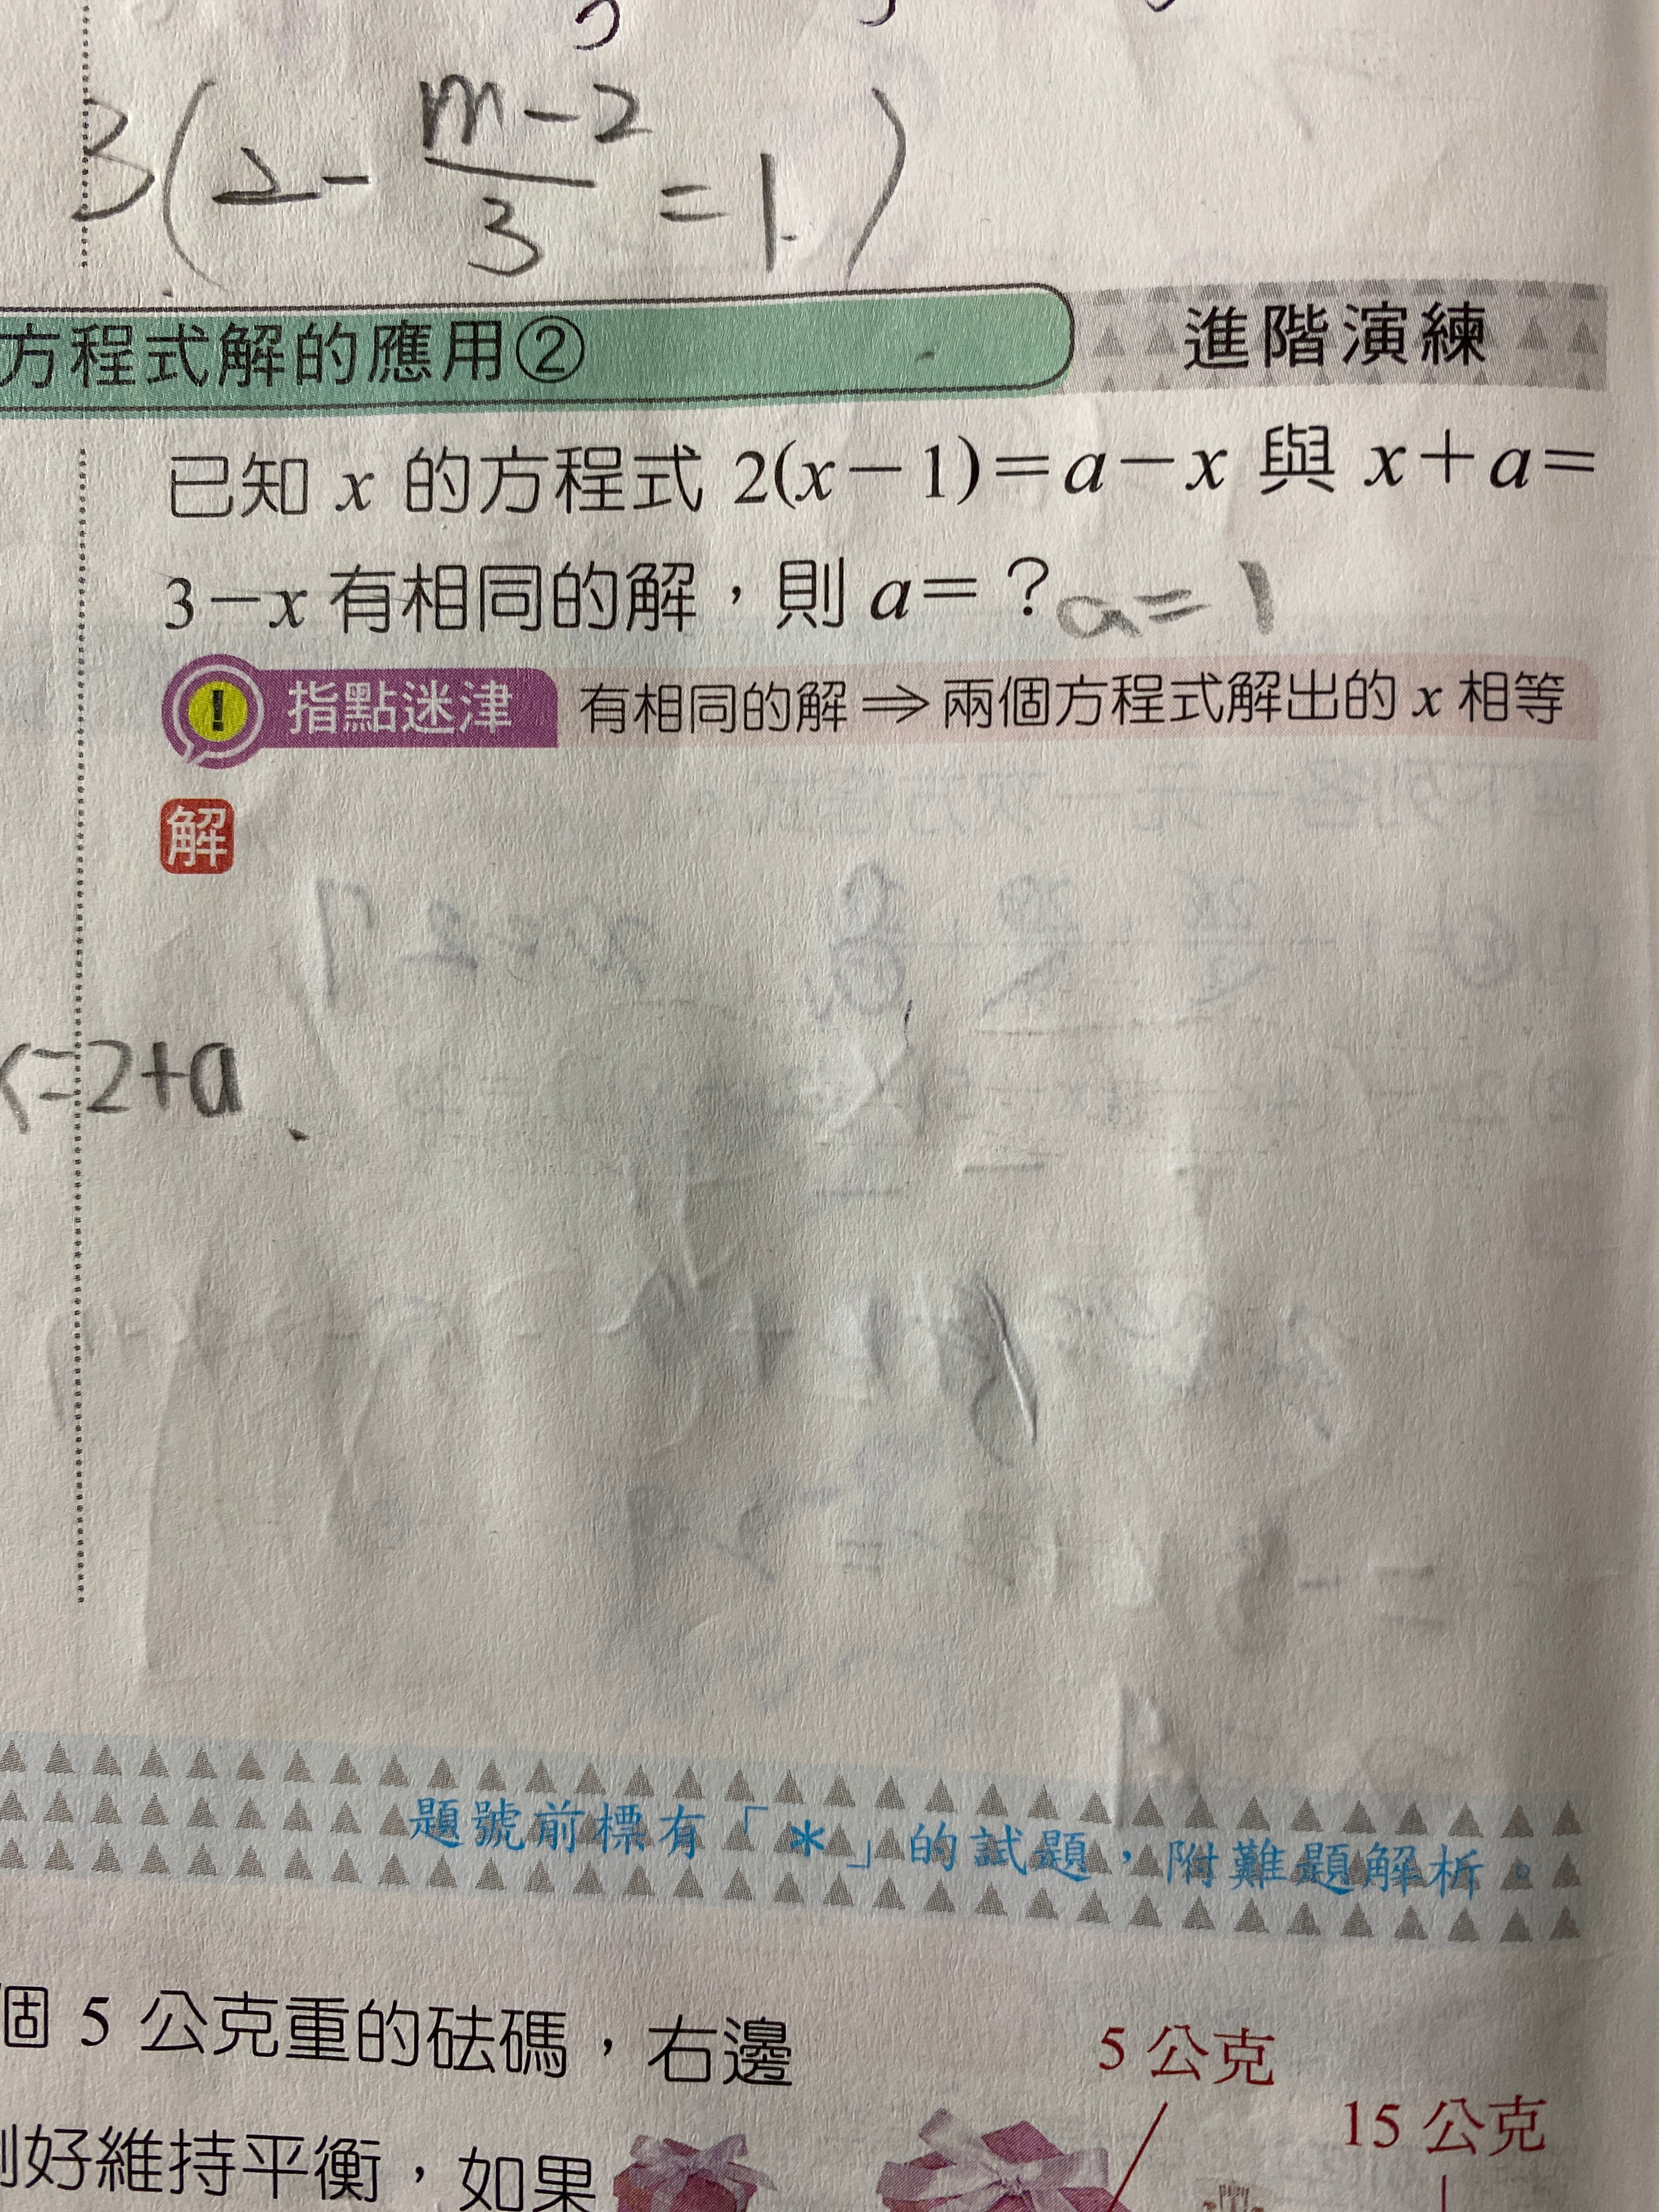 3(2-\frac{m-2}{3}=1)
方程式解的應用② 進階演練
已知 x 的方程式 2(x－1)＝a－x 與 x＋a＝
3－x 有相同的解，則 a＝？ a=1
! 指點迷津 有相同的解⇒兩個方程式解出的 x 相等
解
=2+a
題號前標有「*」的試題，附難題解析。
個 5 公克重的砝碼，右邊
5 公克
15 公克
好維持平衡，如果